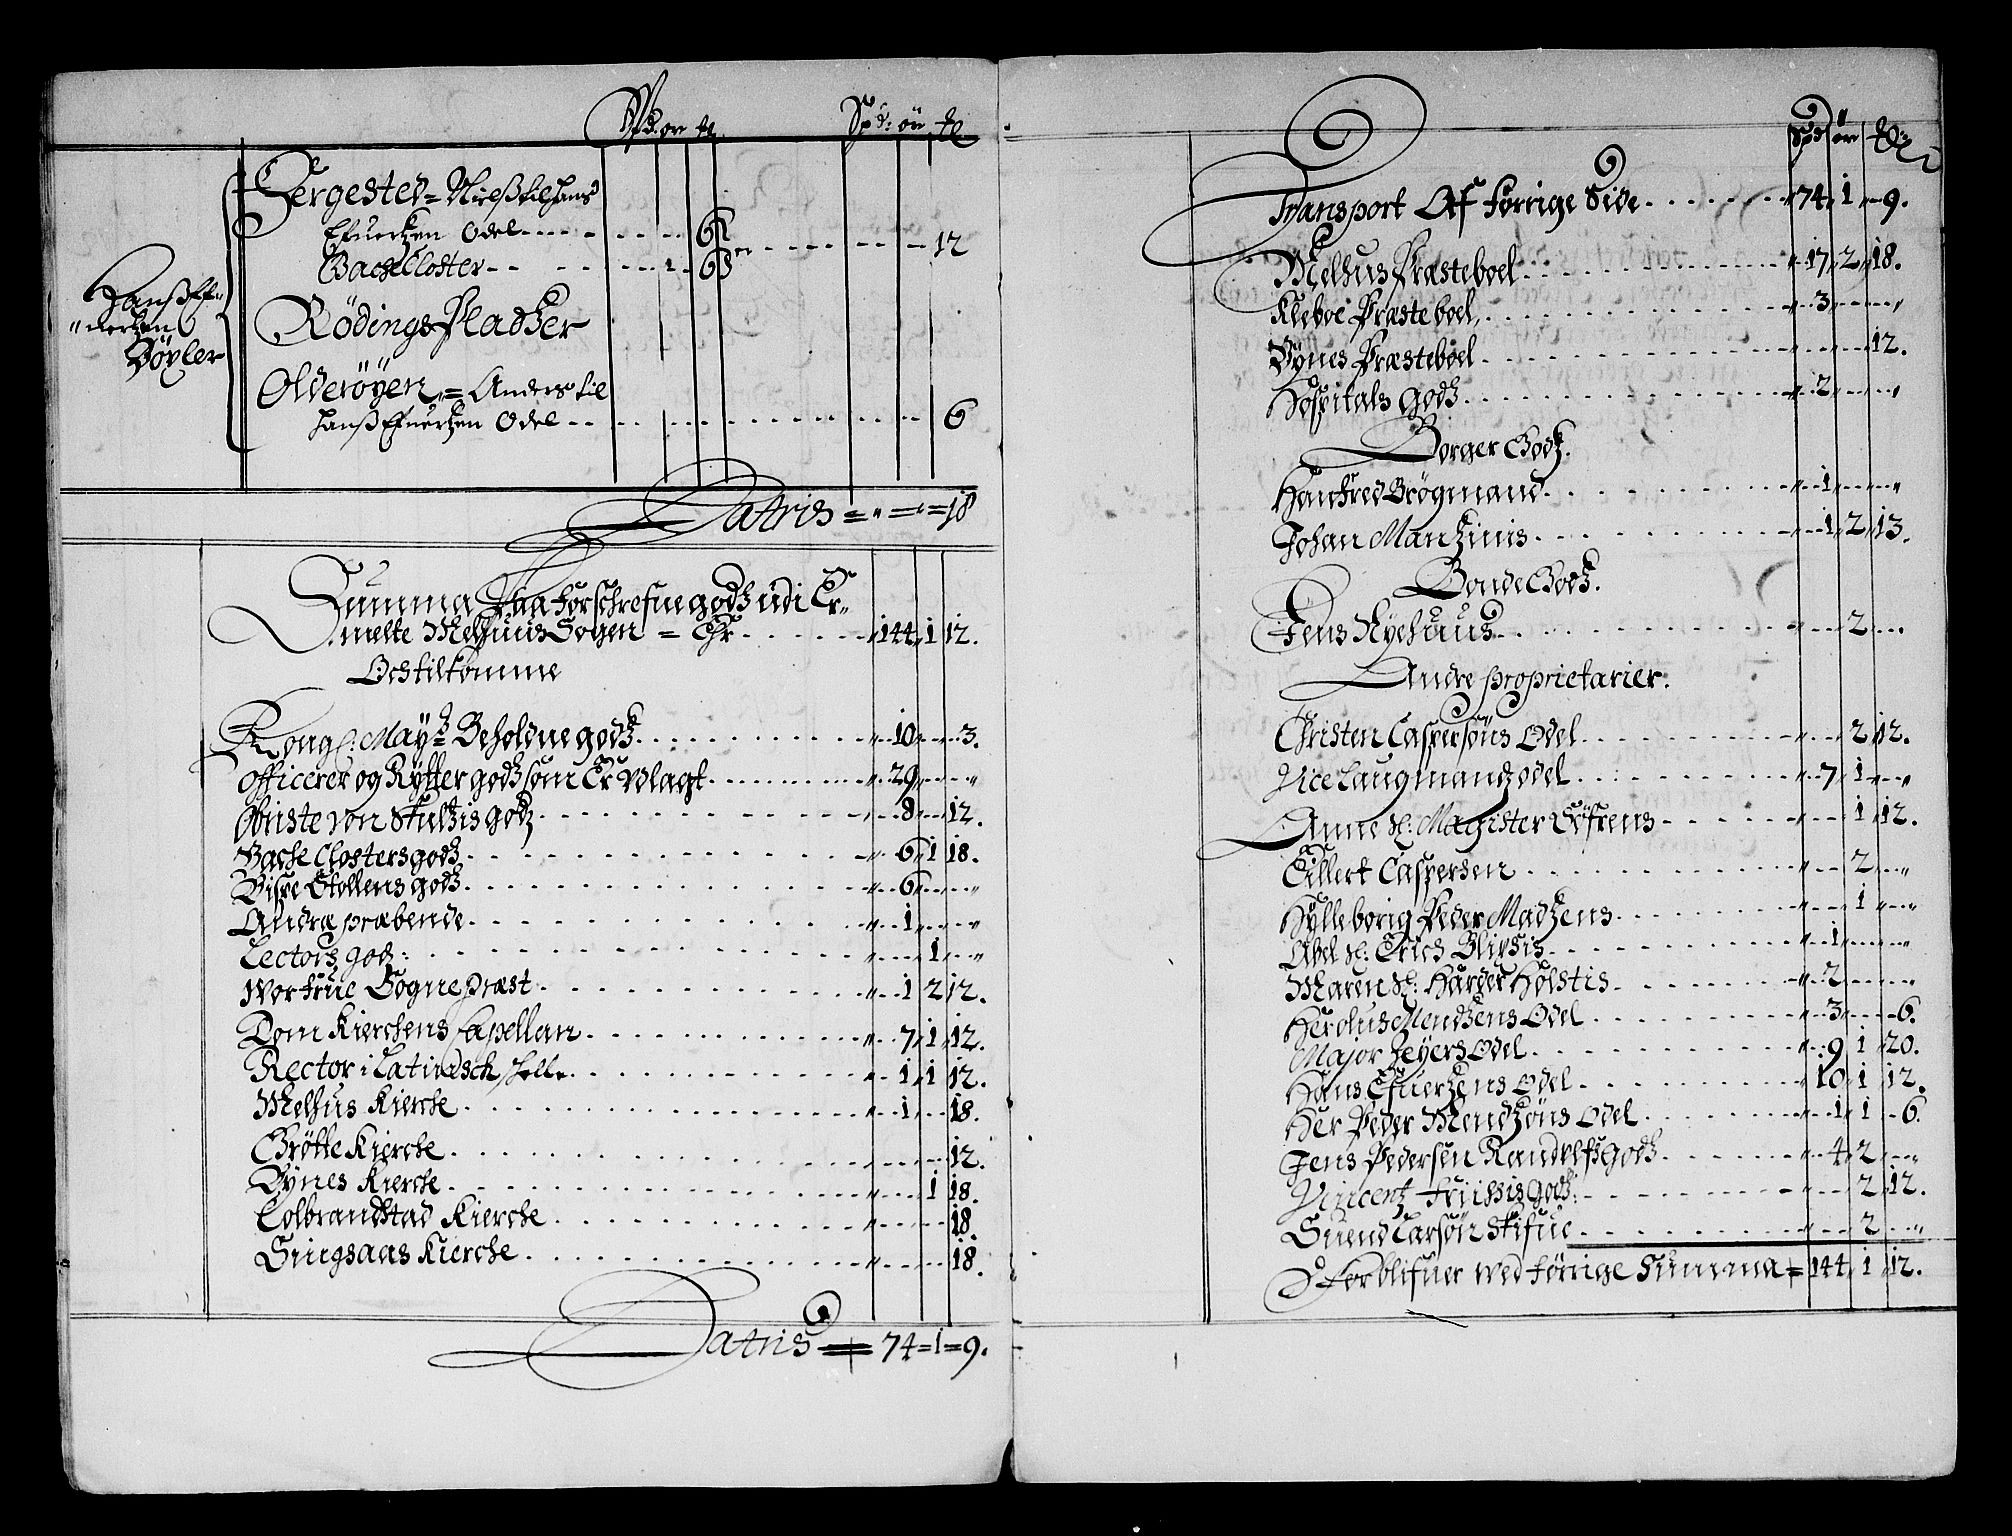 Spd: ør
Spd: ør
Hanß Ef„
„uertzen
Böxler
Sergested = Nielß til Hans
Efuertzen Odel 6
er 12
Bache Closter 6
Rödings Pladtzer
Olderöÿen = Anders til
Hanß Efuertzen Odel 6
Latris = 18
Summa Paa forschrefne godtz udi Er„
melte Melhuus Sogen = Er 144 1 12.
Och tilkomme
Kongl: Mayts Beholdne godtz 10 3.
Officerer og Rytter godtz som Er Vdlagt 29
Obriste von Schultzis godtz 8 12.
Bache Closters godtz 6 1 18.
Bispe Stollens godtz 6
Andræ præbende 1
Lectors godtz: 1
Wor frue Sogne præst 1 2 12.
Dom Kierchens Capellan 7 1 12.
Rector i Latindsch Skolle 1 1 12.
Melhus Kierche 1 18.
Grötte Kierche 12.
Bynes Kierche 1 18.
Colbrandstad Kierche 18.
Singsaas Kierche 18.
Latris = 74 = 1 = 9.
Spd ör
Transport Af forrige Side 74 1 9.
Melhus Præsteboel 17 2 18.
Kleboe Præsteboel 3
Bÿnes Præsteboel 12.
Hospitals godtz 2
Borger Godtz.
Hanfred Brögmand 1
Johan Mantzinis 1 2 13.
Bonde Godtz.
Jens Nyehuus 2
Andre proprietarier.
Christen Caspersöns Odel 2 12.
Vice Laugmandtz odel 7 1
Anne Sl: Magister Söfrens 1 12.
Eillert Caspersen 2
Hylleborig Peder Madtzens 1
Abel Sl: Erichs 1
Maren Sl: Harder Holstis 2
Her Olus Mendtzens Odel 3 6.
Major Zeÿers Odel 9 1 20.
Hans Efuertzens Odel 10 1 12.
Her Peder Mendtzöns Odel 1 1 6
Jens Pedersen Randulfs godtz 4 2
Vincentz Friissis godtz: 2 12.
Suend Larsön Skifue 2
Forblifuer wed forrige Summa = 144 1 12.